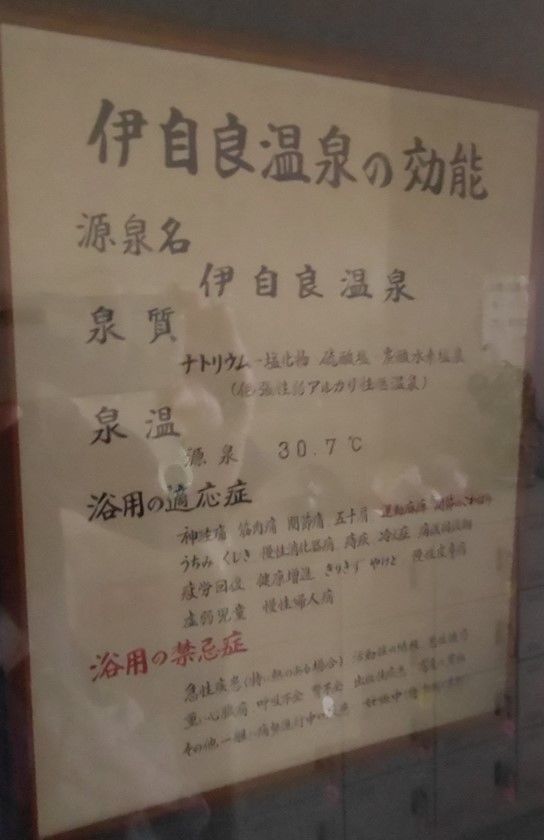 伊自良温泉の効能
源泉名
伊自良温泉
泉質
ナトリウム-塩化物 硫酸塩 炭酸水素塩泉
(低張性弱アルカリ性低温泉)
泉温
源泉 30.7℃
浴用の適応症
神経痛 筋肉痛 関節痛 五十肩 運動麻痺 関節のこわばり
うちみ くじき 慢性消化器病 痔疾 冷え症 病後回復期
疲労回復 健康増進 きりきず やけど 慢性皮膚病
虚弱児童 慢性婦人病
浴用の禁忌症
急性疾患(特に熱のある場合) 活動性の結核 悪性腫瘍
重い心臓病 呼吸不全 腎不全 出血性疾患 高度の貧血
その他一般に病勢進行中の疾患 妊娠中